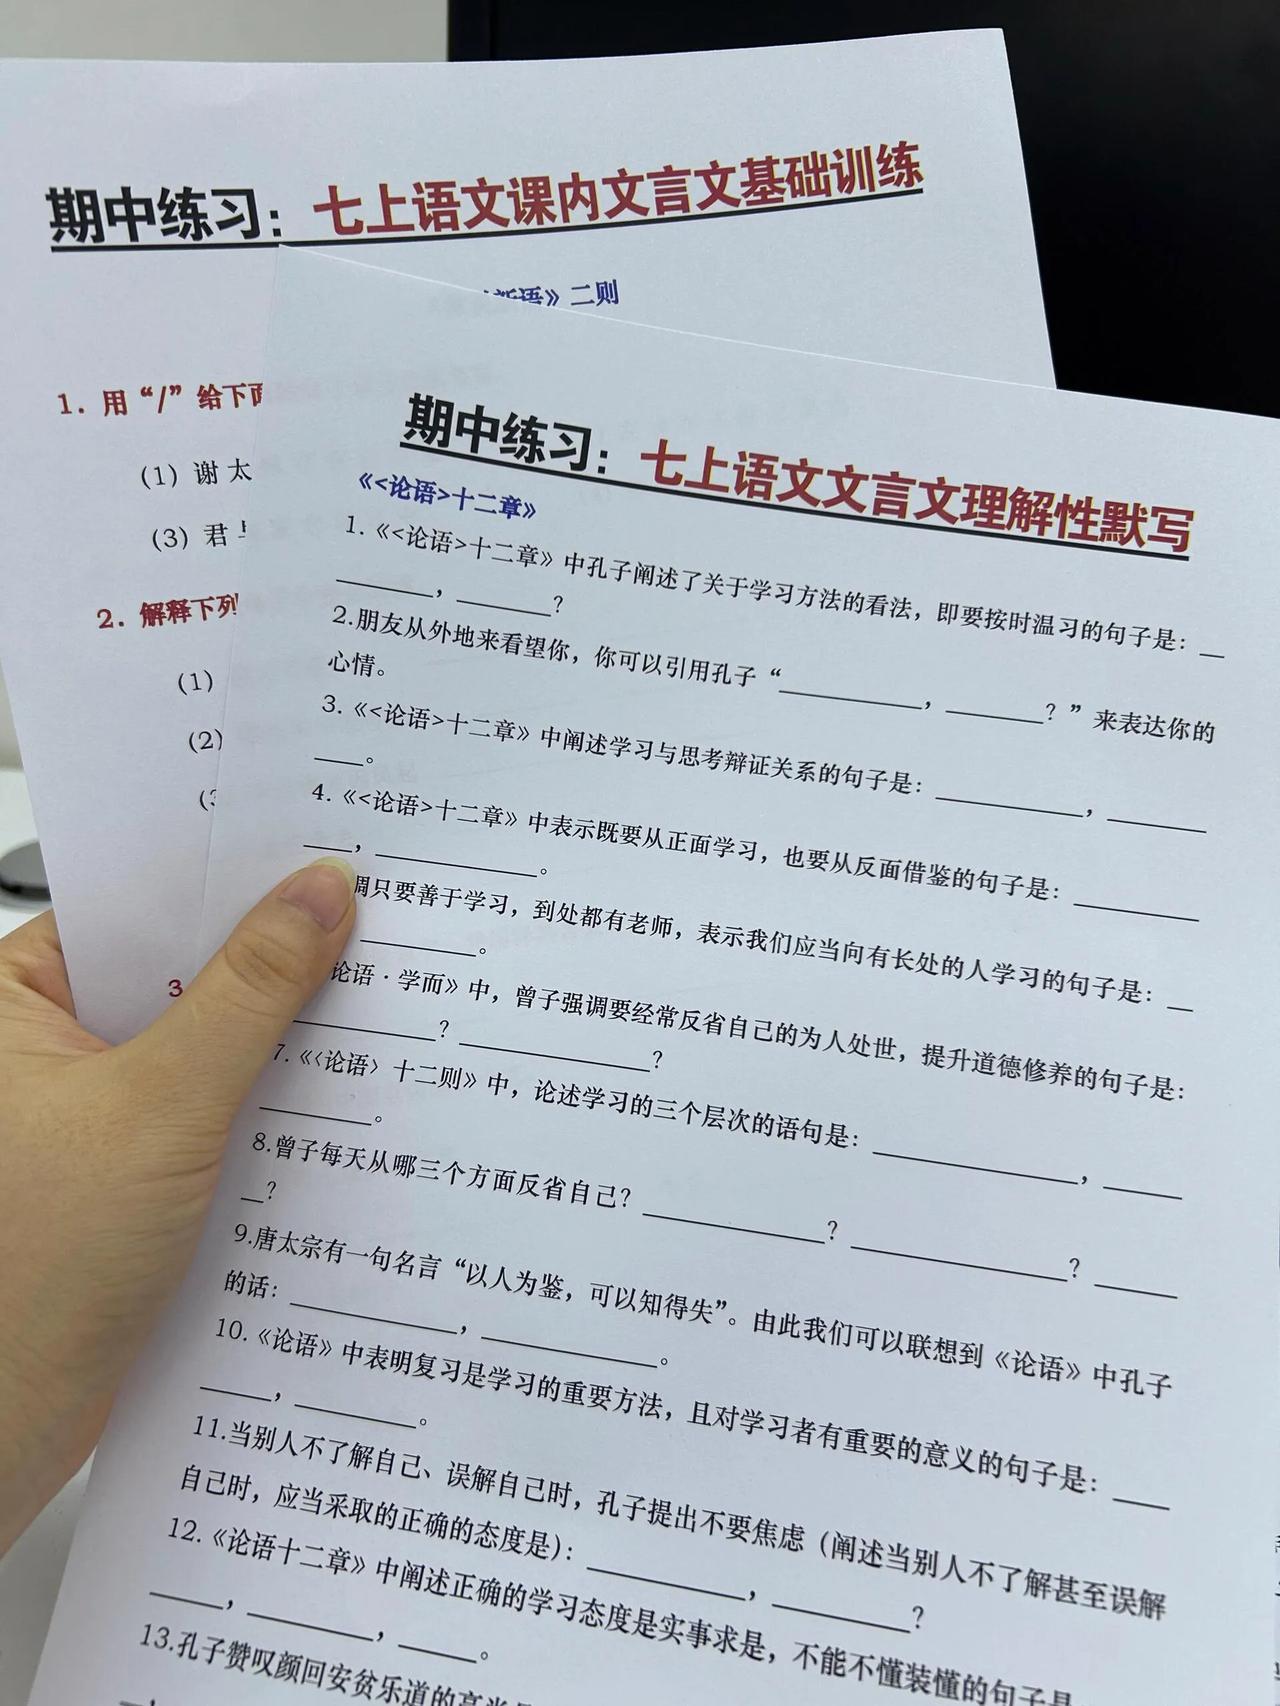 期中练习：七上语文课内文言文基础训练
语》二则
1. 用“/”给下面
(1) 谢 太
(3) 君
2. 解释下列
(1)
(2)
(3
3
期中练习：七上语文文言文理解性默写
《<论语>十二章》
1.《<论语>十二章》中孔子阐述了关于学习方法的看法，即要按时温习的句子是：__
________，________？
2.朋友从外地来看望你，你可以引用孔子“____________，________？”来表达你的
心情。
3.《<论语>十二章》中阐述学习与思考辩证关系的句子是：____________，________
____。
4.《<论语>十二章》中表示既要从正面学习，也要从反面借鉴的句子是：__________
____，____________。
调只要善于学习，到处都有老师，表示我们应当向有长处的人学习的句子是：__
__________。
论语·学而》中，曾子强调要经常反省自己的为人处世，提升道德修养的句子是：
____________？________________？
7.《〈论语〉十二则》中，论述学习的三个层次的语句是：________________，______
_________。
8.曾子每天从哪三个方面反省自己？_______________？__________________？_______
__？
9.唐太宗有一句名言“以人为鉴，可以知得失”。由此我们可以联想到《论语》中孔子
的话：______________，______________。
10.《论语》中表明复习是学习的重要方法，且对学习者有重要的意义的句子是：____
______，__________。
11.当别人不了解自己、误解自己时，孔子提出不要焦虑（阐述当别人不了解甚至误解
自己时，应当采取的正确的态度是）：______________，____________？
12.《论语十二章》中阐述正确的学习态度是实事求是，不能不懂装懂的句子是
______，__________，______。
13.孔子赞叹颜回安贫乐道的高尚